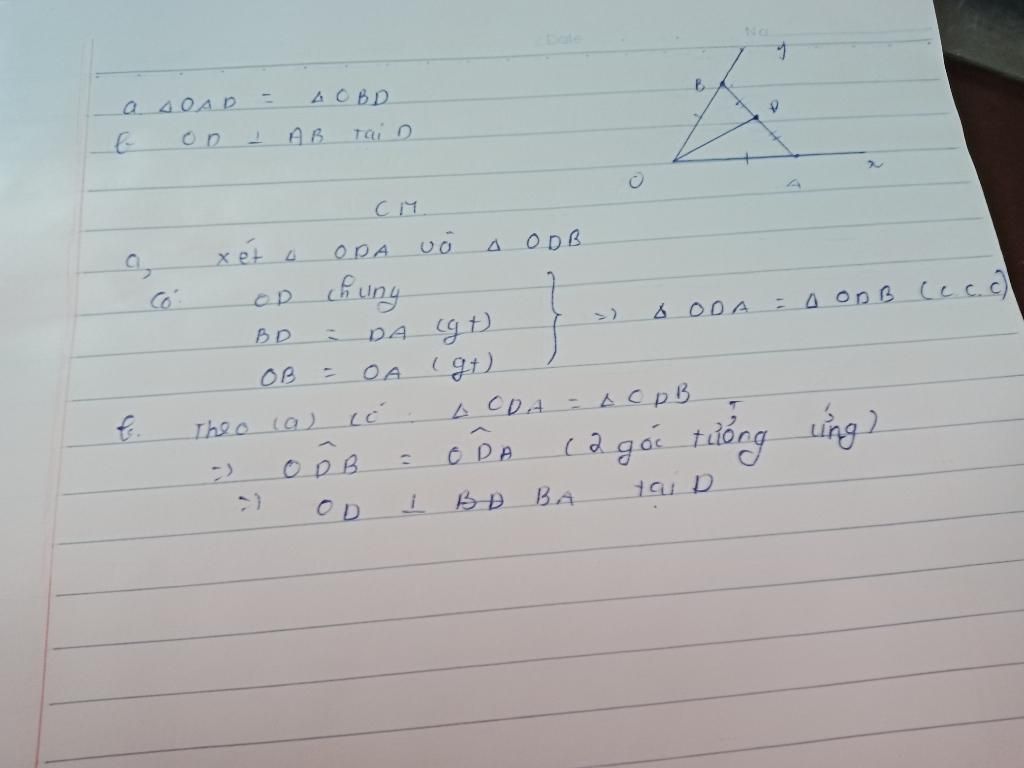 Date
No
a. Δ OAD = Δ OBD
b. OD ⊥ AB tại D
y
B
D
O
A
x
CM
a, xét Δ ODA và Δ ODB
Có: OD chung
BD = DA (gt)
OB = OA (gt)
=> Δ ODA = Δ ODB (c.c.c)
b. Theo (a) có: Δ ODA = Δ ODB
=> ODB = ODA (2 góc tưởng ứng)
=> OD ⊥ BD BA tại D